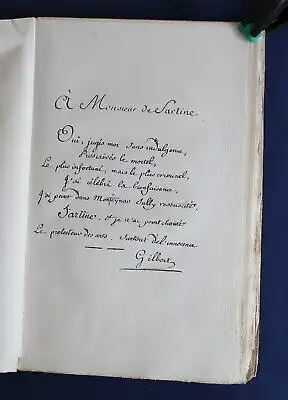 À Monsieur de Sartine.
Oui, jugés moi sans indulgence,
le mortel
Le plus infortuné, mais le plus criminel,
J'ai célébré la bienfaisance,
J'ai peint dans Sully ressuscité,
Sartine, et je n'ai point chanté
Le protecteur des arts, surtout de l'innocence.
Gilbert